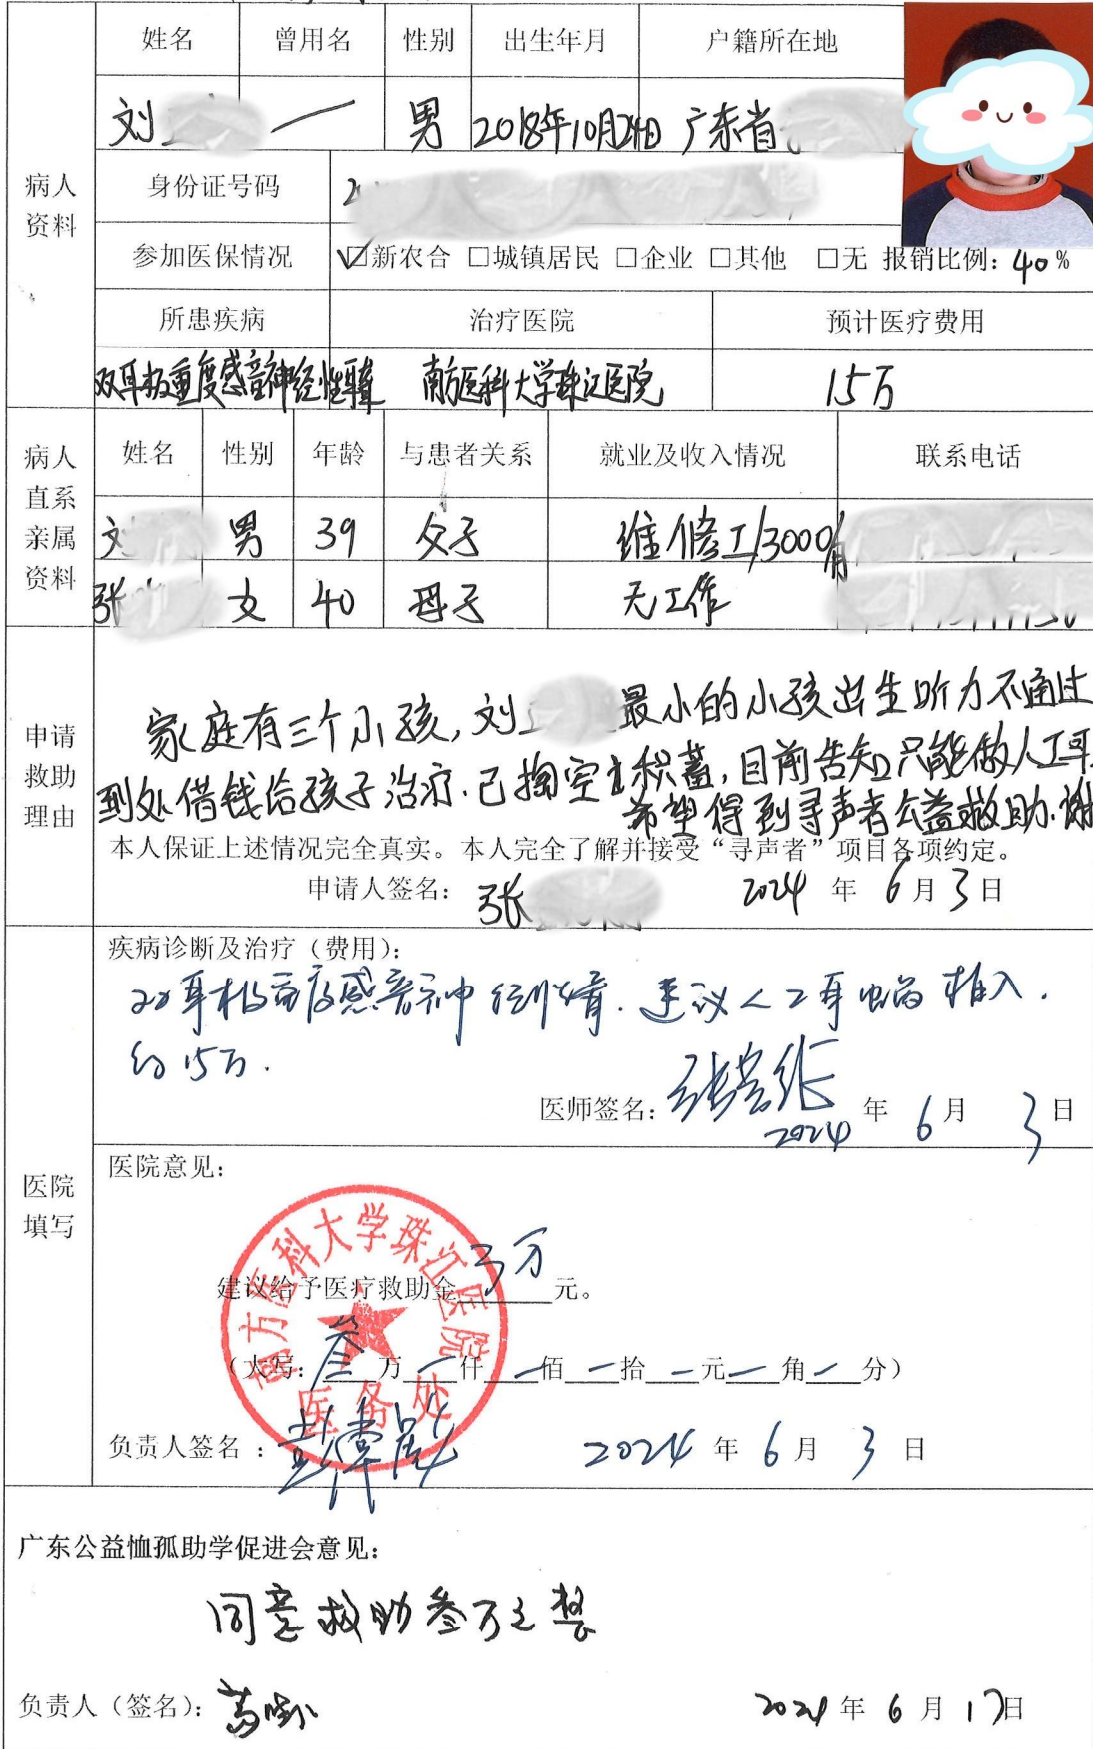 姓名 曾用名 性别 出生年月 户籍所在地
刘 — 男 2018年10月24日 广东省
病人资料
身份证号码
参加医保情况 ☑新农合 □城镇居民 □企业 □其他 □无 报销比例：40%
所患疾病 治疗医院 预计医疗费用
双耳极重度感音神经性聋 南方医科大学珠江医院 15万
病人直系亲属资料
姓名 性别 年龄 与患者关系 就业及收入情况 联系电话
刘 男 39 父子 维修工/3000/月
张 女 40 母子 无工作
申请救助理由
家庭有三个小孩，刘 最小的小孩出生听力不通过
到处借钱给孩子治疗.已掏空 积蓄，目前告知只能做人工耳
希望得到寻声者公益救助.谢
本人保证上述情况完全真实。本人完全了解并接受“寻声者”项目各项约定。
申请人签名： 张 2024 年 6月3日
医院填写
疾病诊断及治疗（费用）：
双耳极重度感音神经性聋.建议人工耳蜗植入.
约15万.
医师签名： 2024 年 6月 3日
医院意见：
南方医科大学珠江医院
医务处
建议给予医疗救助金 3万 元。
（大写：叁万一仟一佰一拾一元一角一分）
负责人签名： 2024 年 6月 3日
广东公益恤孤助学促进会意见：
同意救助叁万元整
负责人（签名）： 2024年 6月 17日